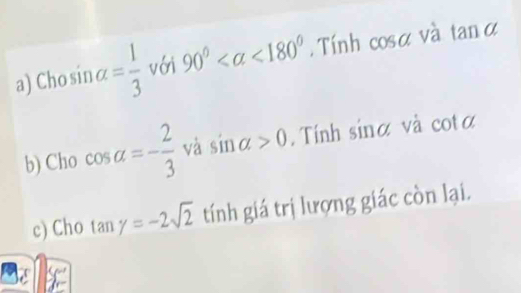 a) Cho sin α = 1/3 với 90⁰ < α < 180⁰. Tính cosα và tan α
b) Cho cos α = -2/3 và sin α > 0. Tính sinα và cot α
c) Cho tan γ = -2√2 tính giá trị lượng giác còn lại.